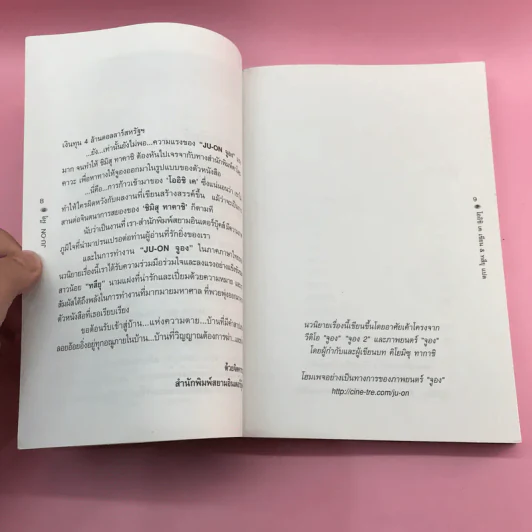 เงินทุน 4 ล้านดอลลาร์สหรัฐฯ
...ยัง...เท่านั้นยังไม่พอ...ความแรงของ "JU-ON จูอง"
มาก จนทำให้ ชิมิสุ ทาคาชิ ต้องหันไปเจรจากับทางสำนักพิมพ์
คาวะ เพื่อหาทางให้จูองออกมาในรูปแบบของตัวหนังสือ
...นี่คือ...การก้าวเข้ามาของ "โออิชิ เค" ซึ่งแน่นอนว่า
ทำให้ใครผิดหวังกับผลงานที่เขียนสร้างสรรค์ขึ้น แม้ว่าจะเป็น
สานต่อจินตนาการสยองของ "ชิมิสุ ทาคาชิ" ก็ตามที
นับว่าเป็นงานที่ เรา-สำนักพิมพ์สยามอินเตอร์บุ๊คส์มีความ
ภูมิใจที่นำมาปรนเปรอต่อท่านผู้อ่านที่รักยิ่งของเรา
และในการทำงาน "JU-ON จูอง" ในภาคภาษาไทย
นวนิยายเรื่องนี้เราได้รับความร่วมมือร่วมใจและลงแรงอย่างแข็งขัน
สาวน้อย "ทสึยุ" นามแฝงที่น่ารักและเปี่ยมด้วยความหมาย
สัมผัสได้ถึงพลังในการทำงานที่มากมายมหาศาล ที่พวยพุ่งออก
ตัวหนังสือที่เธอเรียบเรียง
ขอต้อนรับเข้าสู่บ้าน...แห่งความตาย...บ้านที่มีคำ
ลอยอ้อยอิ่งอยู่ทุกอณูภายในบ้าน...บ้านที่วิญญาณต้องการฆ่า
ด้วย
สำนักพิมพ์สยามอินเตอร์
JU-ON
โออิชิ เค เขียน & ทสึยุ แปล
นวนิยายเรื่องนี้เขียนขึ้นโดยอาศัยเค้าโครงจาก
วีดิโอ "จูอง" "จูอง 2" และภาพยนตร์ "จูอง"
โดยผู้กำกับและผู้เขียนบท คิโยมิซุ ทากาชิ
โฮมเพจอย่างเป็นทางการของภาพยนตร์ "จูอง"
http://cine-tre.com/ju-on